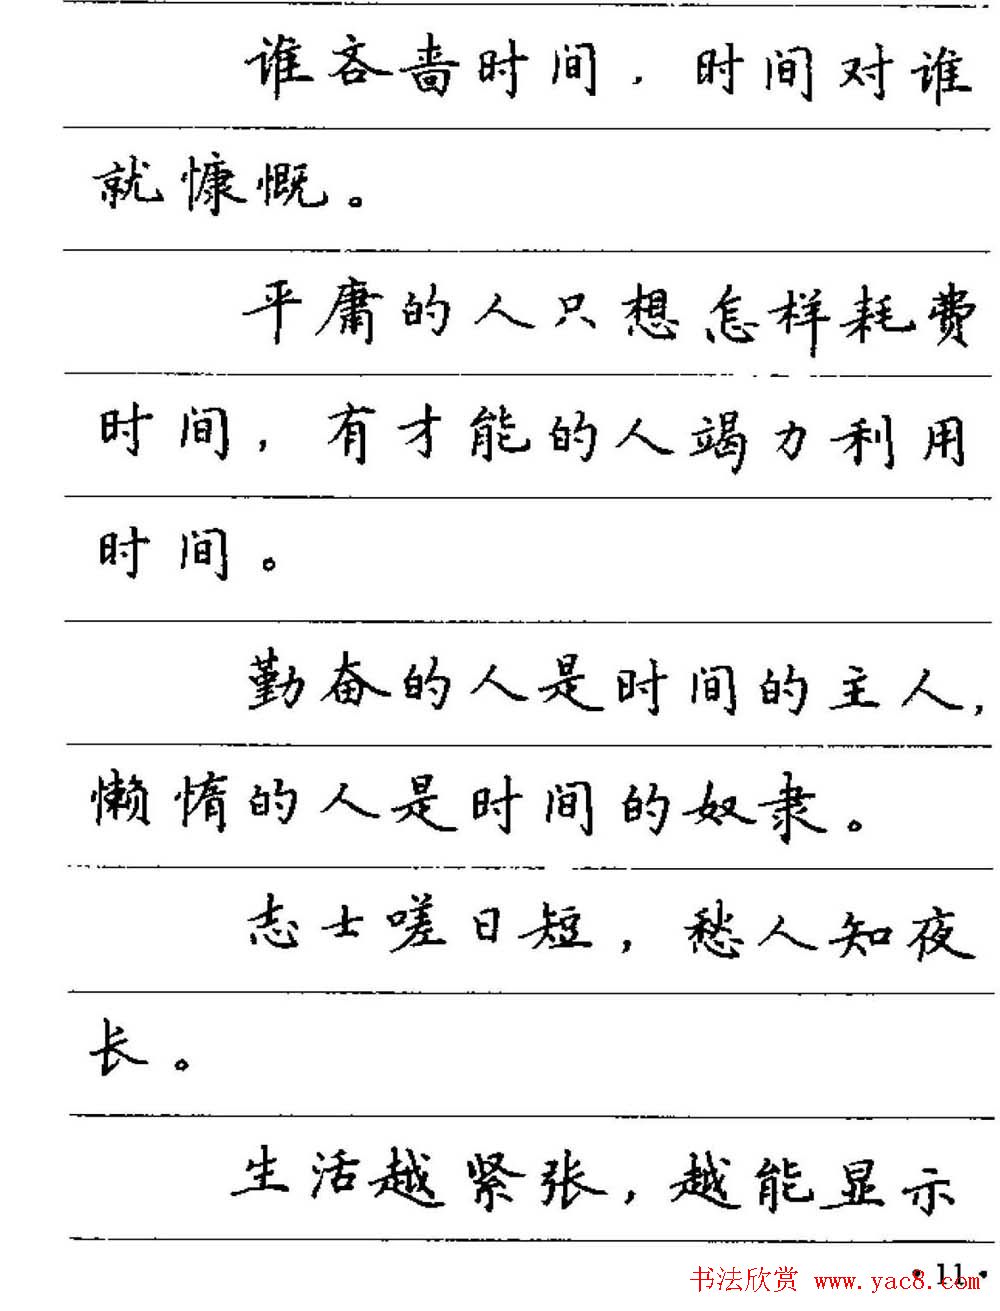 谁吝啬时间，时间对谁
就慷慨。
平庸的人只想怎样耗费
时间，有才能的人竭力利用
时间。
勤奋的人是时间的主人，
懒惰的人是时间的奴隶。
志士嗟日短，愁人知夜
长。
生活越紧张，越能显示
·11·
书法欣赏 www.yac8.com